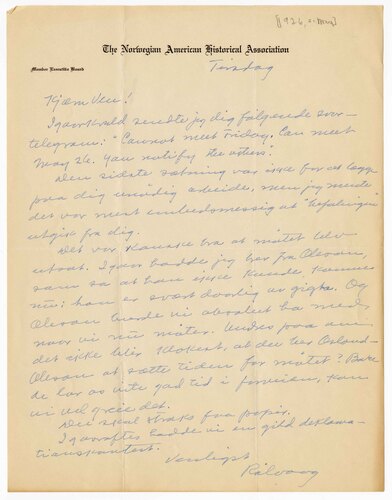 [1926, -- May]
The Norwegian American Historical Association
Member Executive Board
Tirsdag
Kjære Ven!
Igaarkveld sendte jeg dig følgende svar-
telegram: "Cannot meet Friday. Can meet
May 26. You notify the others".
Den sidste sætning var ikke for at lægge
paa dig unødig arbeide, men jeg mente
det var mest embedsmessig at befalingen
utgik fra dig.
Det var kanske bra at møtet blev
utsat. Igaar hadde jeg brev fra Oleson,
som sa at han ikke kunde komme
nu; han er svært daarlig av gigta. Og
Oleson burde vi absolut ha med
naar vi nu møter. Undres paa om
det ikke blir klokest, at du ber Oslund-
Oleson at sætte tiden for møtet? Bare
de lar os vite god tid i forveien, kan
vi vel greie det.
Du skal straks faa papir.
Igaaraftes hadde vi en gild deklama-
tionskontest.
Venligst
Rølvaag